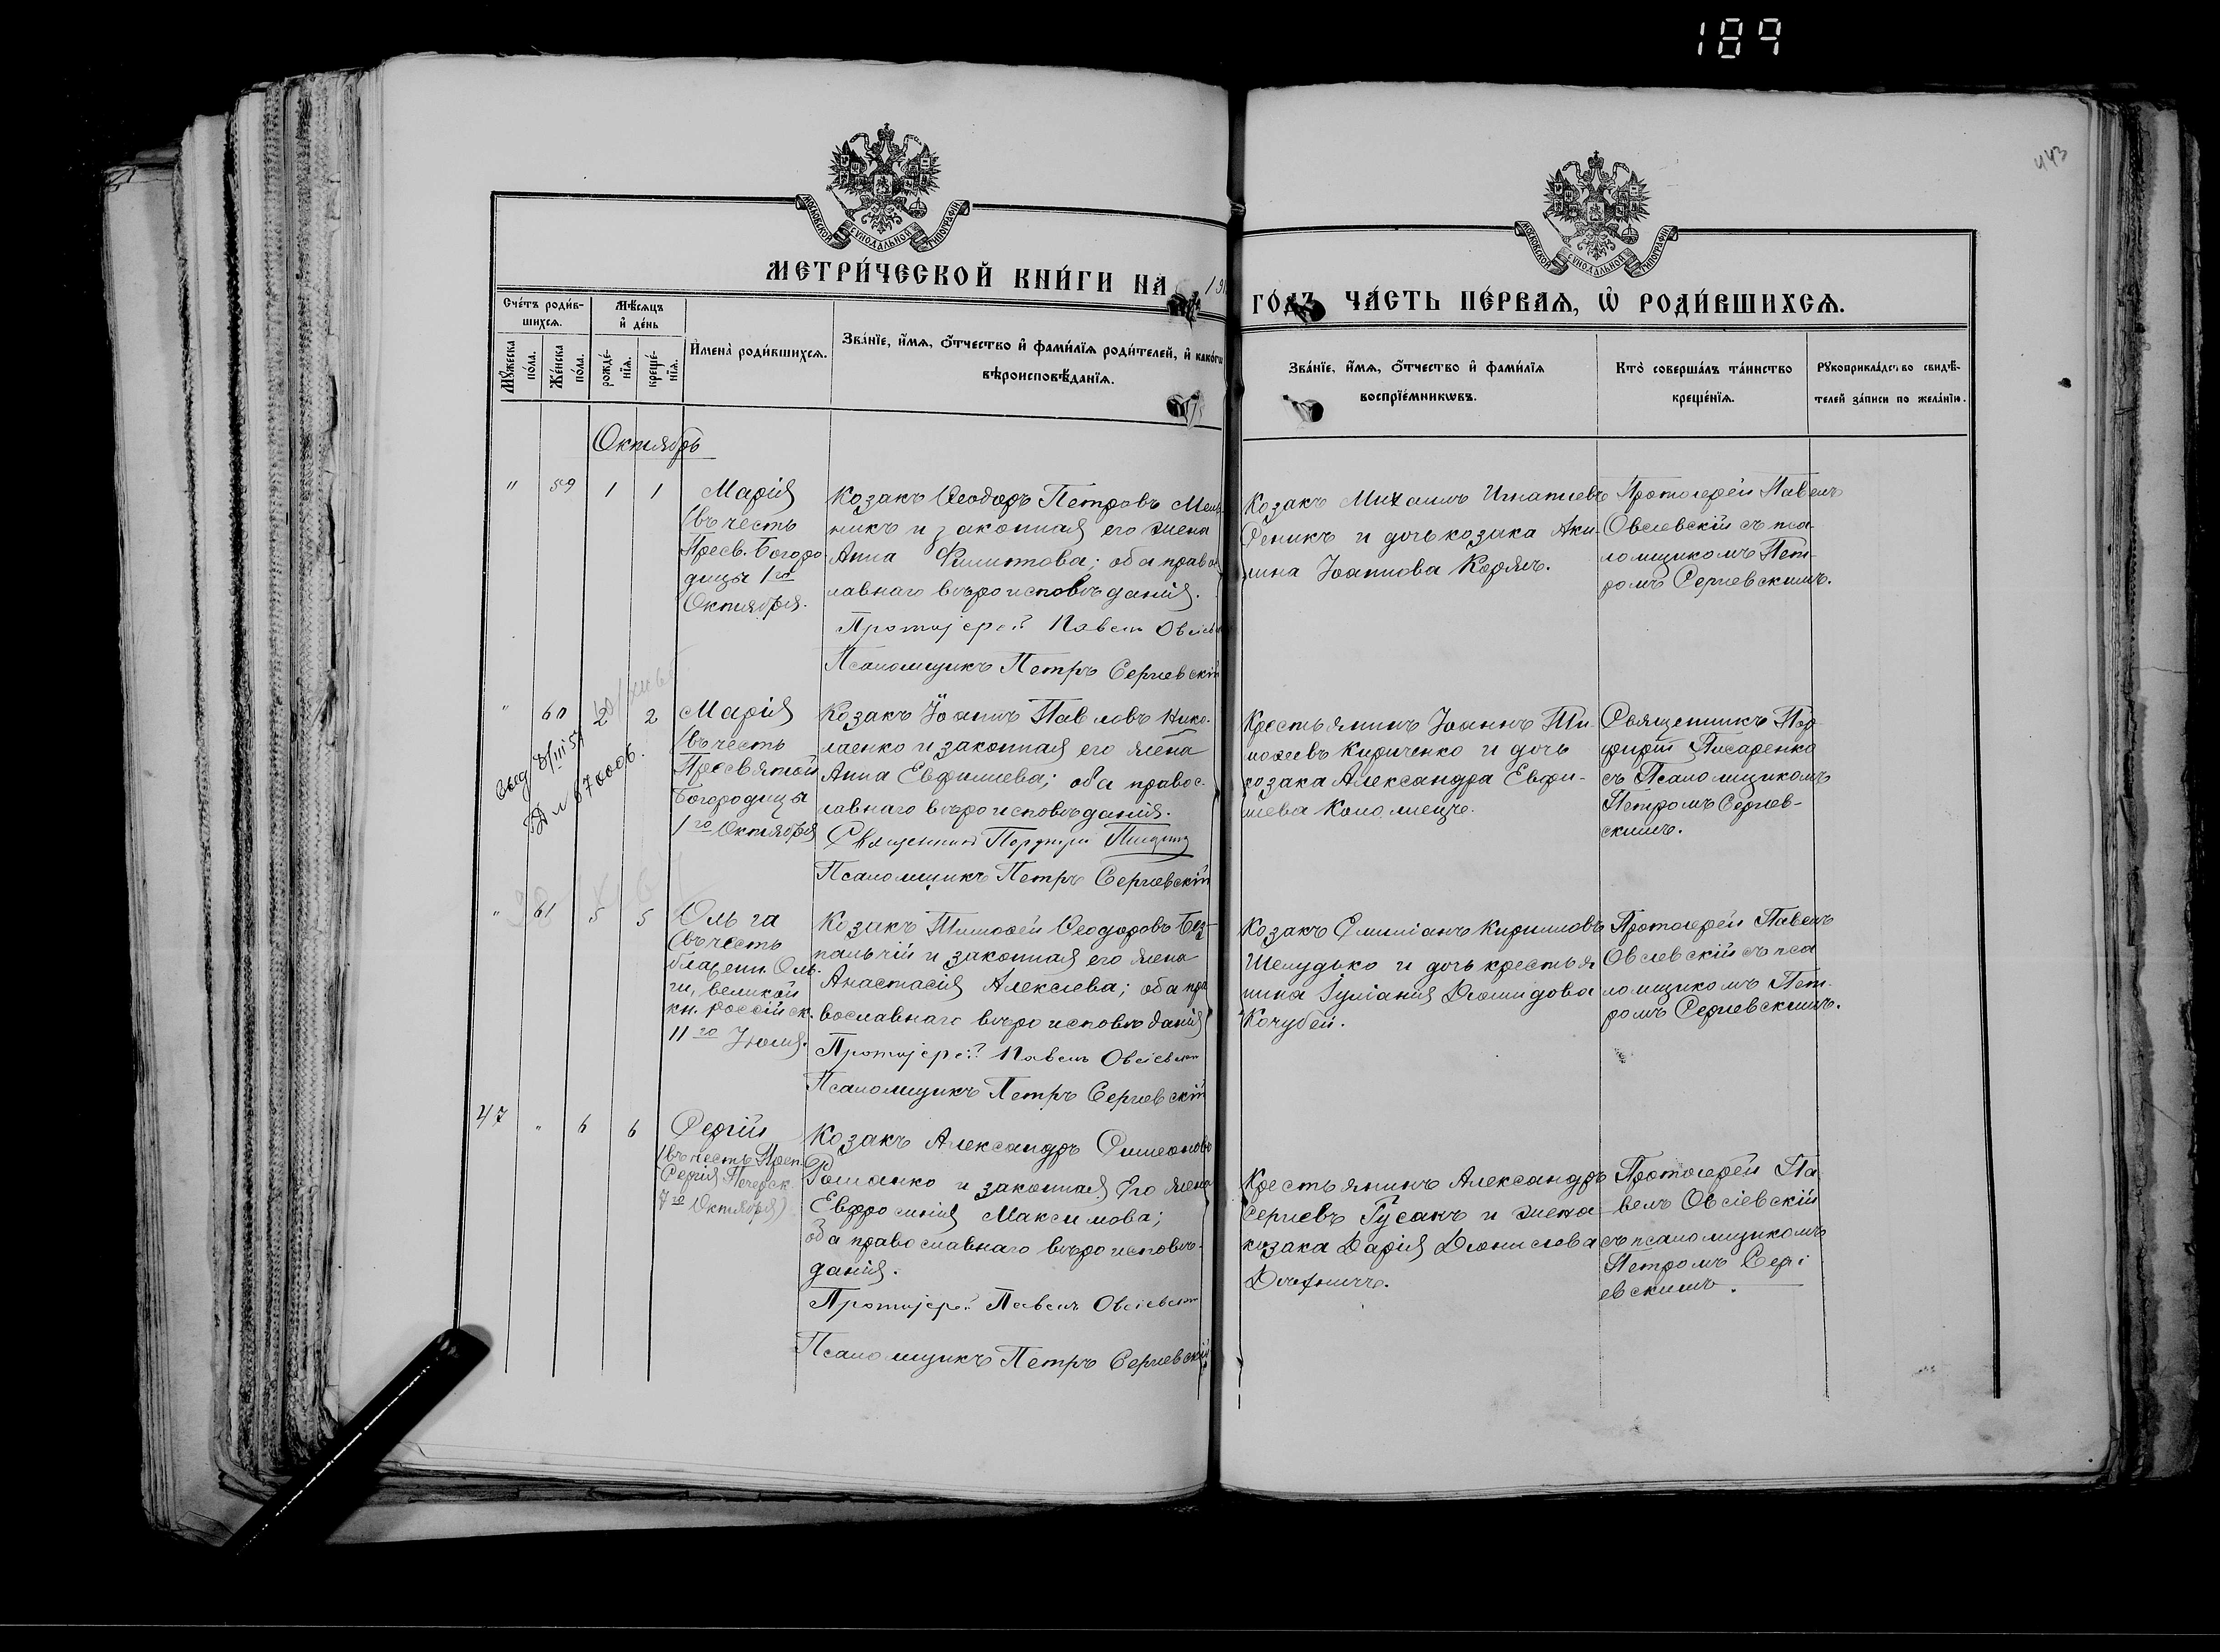 189
443
МОСКОВСКОЙ СУНОДАЛЬНОЙ ТИПОГРАФІИ
МОСКОВСКОЙ СУНОДАЛЬНОЙ ТИПОГРАФІИ
МЕТРИ́ЧЕСКОЙ КНИ́ГИ НА
ГО́ДЪ ЧА́СТЬ ПЕ́РВАѦ, Ѡ҆ РОДИ́ВШИХСѦ.
Сче́тъ роди́в-
шихсѧ.
Мѣ́сѧцъ
и҆ де́нь
Мꙋ́жеска
по́ла.
Же́нска
по́ла.
рожде́-
нїѧ.
креще́-
нїѧ.
И҆мена̀ роди́вшихсѧ.
Зва́нїе, и҆́мѧ, ѻ҆́тчество и҆ фами́лїѧ роди́телей, и҆ како́гѡ
вѣроисповѣ́данїѧ.
Зва́нїе, и҆́мѧ, ѻ҆́тчество и҆ фами́лїѧ
воспрїе́мникѡвъ.
Кто̀ соверша́лъ та́инство
креще́нїѧ.
Рꙋкоприкла́дство свидѣ́-
телей за́писи по жела́нїю.
Октябрь
" 59 1 1
Марія
(въ честь
Пресв. Богоро-
дицы 1го
Октября.
Козакъ Ѳеодоръ Петровъ Мель-
никъ и законная его жена
Анна Филиппова; оба правос
лавнаго вѣроисповѣданія.
Протоіерей Павелъ Овсіевск
Псаломщикъ Петръ Сергіевскій
Козакъ Михаилъ Игнатіевъ
Феникъ и дочь козака Аки-
лина Іоаннова Коряк.
Протоіерей Павелъ
Овсіевскій съ пса-
ломщикомъ Пет-
ромъ Сергіевскимъ.
" 60 2 2
Марія
(въ честь
Пресвятой
Богородицы
1го Октября
Козакъ Іоаннъ Павловъ Нико-
лаенко и законная его жена
Анна Евфиміева; оба правос-
лавнаго вѣроисповѣданія.
Священникъ Порфирій
Псаломщикъ Петръ Сергіевскій
Крестьянинъ Іоаннъ Ти-
моѳеевъ Кириченко и дочь
козака Александра Евфи-
міева Коломіецъ.
Священникъ Пор-
фирій Писаренко
съ Псаломщикомъ
Петромъ Сергіев-
скимъ.
" 61 5 5
Ольга
(въ честь
благовѣрн. Оль-
ги, великой
кн. россійск.
11го Іюля.
Козакъ Тимоѳей Ѳеодоровъ Без-
пальчій и законная его жена
Анастасія Алексіева; оба пра
вославнаго вѣроисповѣданія
Протоіерей Павелъ Овсіевскій
Псаломщикъ Петръ Сергіевскій
Козакъ Емиліанъ Кирилловъ
Шелудько и дочь крестья
нина Іуліанія Діомидова
Кочубей.
Протоіерей Павелъ
Овсіевскій съ пса
ломщикомъ Пет-
ромъ Сергіевскимъ.
47 " 6 6
Сергій
(въ честь Преп.
Сергія Печерск.
7го Октября)
Козакъ Александръ Симеоновъ
Романко и законная Его жена
Евфросинія Максимова;
оба православнаго вѣроисповѣ-
данія.
Протоіерей Павелъ Овсіевскій
Псаломщикъ Петръ Сергіевскій
Крестьянинъ Александръ
Сергіевъ Гусакъ и жена
козака Дарія Діонисіева
Протоіерей Па-
велъ Овсіевскій
съ псаломщикомъ
Петромъ Сергі
евскимъ.